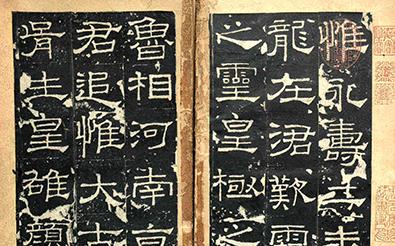 惟永壽
龍在涒歎霜
之靈皇極之
魯相河南京
君追惟大古
胥生皇雄顏